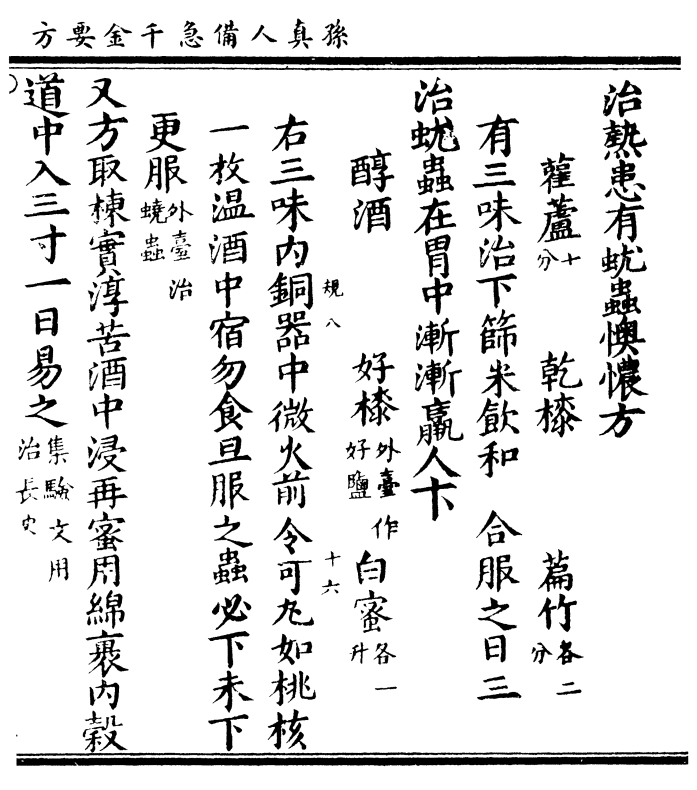 孫真人備急千金要方
治熱患有蚘蟲懊憹方
雚蘆十分 乾㯃 萹竹各二分
有三味治下篩米飲和 合服之日三
治蚘蟲在胃中漸漸羸人卞
醇酒 好㯃外臺作好鹽 白蜜各一升
規八 十六
右三味内銅器中微火前令可丸如桃核
一枚温酒中宿勿食旦服之蟲必下未下
更服外臺治蟯蟲
又方取楝實淳苦酒中浸再蜜用綿裹内穀
道中入三寸一日易之集驗文用治長史